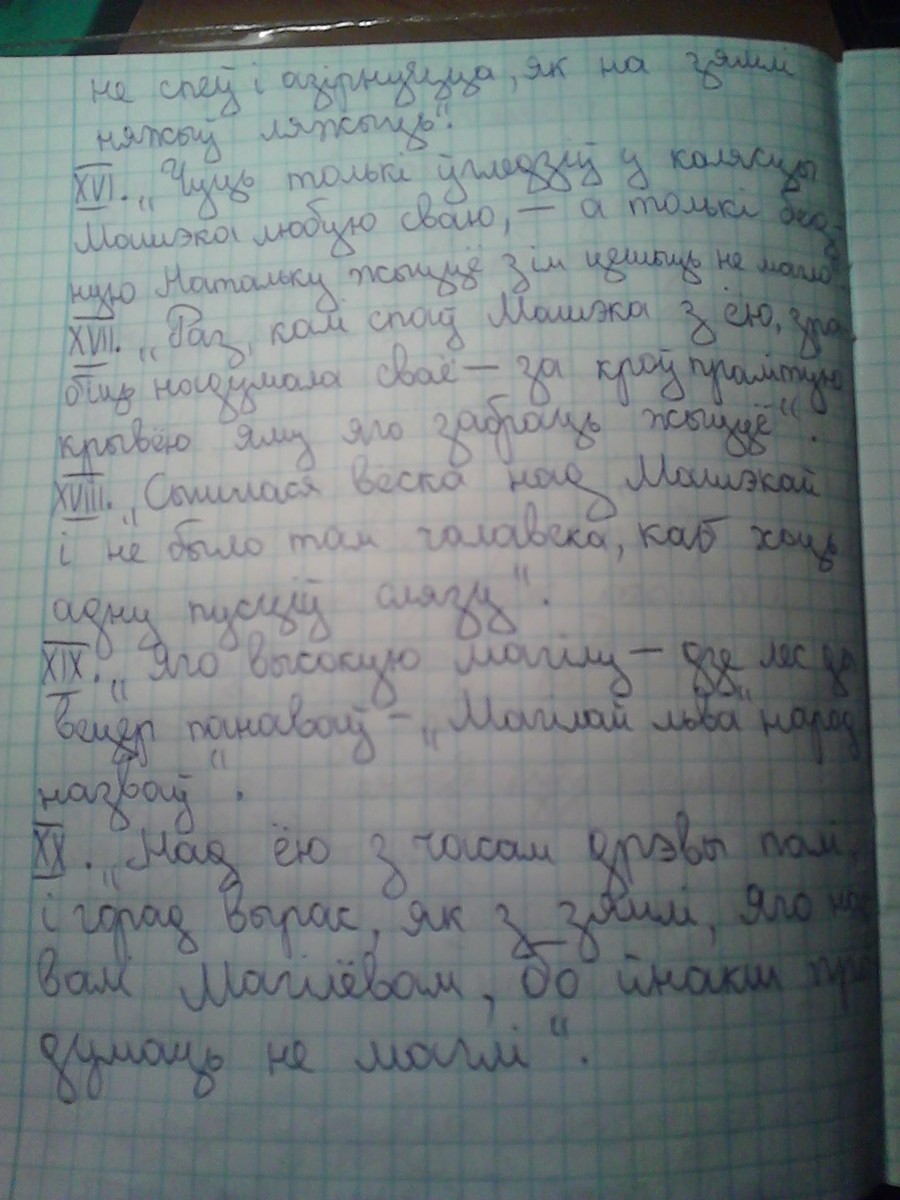 не спеў і азірнуўцца, як на зямлі
няжыў ляжыць".
XVI. „Чуць толькі ўгледзіў у калясцы
Машэка любую сваю, — а толькі бед-
ную Натальку жыццё з ім цешыць не магло
XVII. „Раз, калі спаў Машэка з ёю, зра
біць надумала сваё — за кроў пралітую
крывёю яму яго забраць жыццё".
XVIII. „Сышлася вёска над Машэкай
і не было там чалавека, каб хоць
адну пусціў слязу".
XIX. „Яго высокую магілу — дзе лес да
вецер панаваў — „Магілай льва" народ
назваў".
XX. „Над ёю з часам дрэвы палі,
і горад вырас, як з зямлі, яго наз
валі Магілёвам, бо йнакш пры
думаць не маглі".